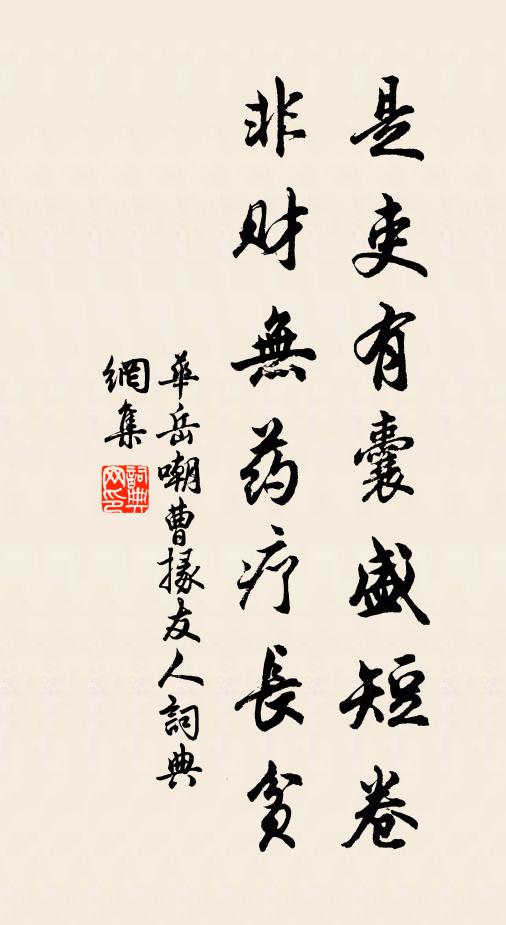 是吏有囊盛短卷
非财無药疗長貧
華岳嘲曹掾友人詞典
網集
詞典网印